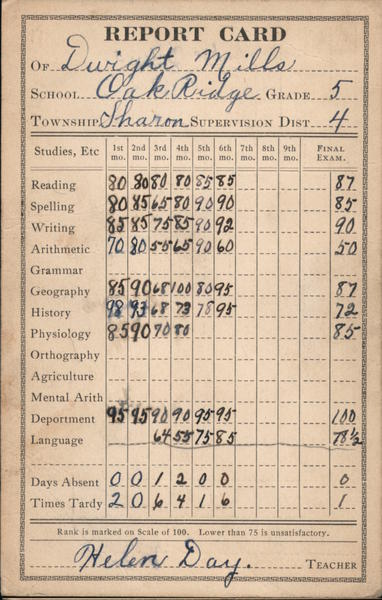 REPORT CARD
OF Dwight Mills
SCHOOL Oak Ridge GRADE 5
TOWNSHIP Sharon SUPERVISION DIST. 4
Studies, Etc 1st mo. 2nd mo. 3rd mo. 4th mo. 5th mo. 6th mo. 7th mo. 8th mo. 9th mo. FINAL EXAM.
Reading 80 80 80 80 85 85 87
Spelling 80 85 65 80 90 90 85
Writing 85 85 75 85 90 92 90
Arithmetic 70 80 55 65 90 60 50
Grammar
Geography 85 90 68 100 80 95 87
History 98 93 68 73 78 95 72
Physiology 85 90 70 80 85
Orthography
Agriculture
Mental Arith
Deportment 95 95 90 90 95 95 100
Language 64 55 75 85 78 1/2
Days Absent 0 0 1 2 0 0 0
Times Tardy 2 0 6 4 1 6 1
Rank is marked on Scale of 100. Lower than 75 is unsatisfactory.
Helen Day. TEACHER